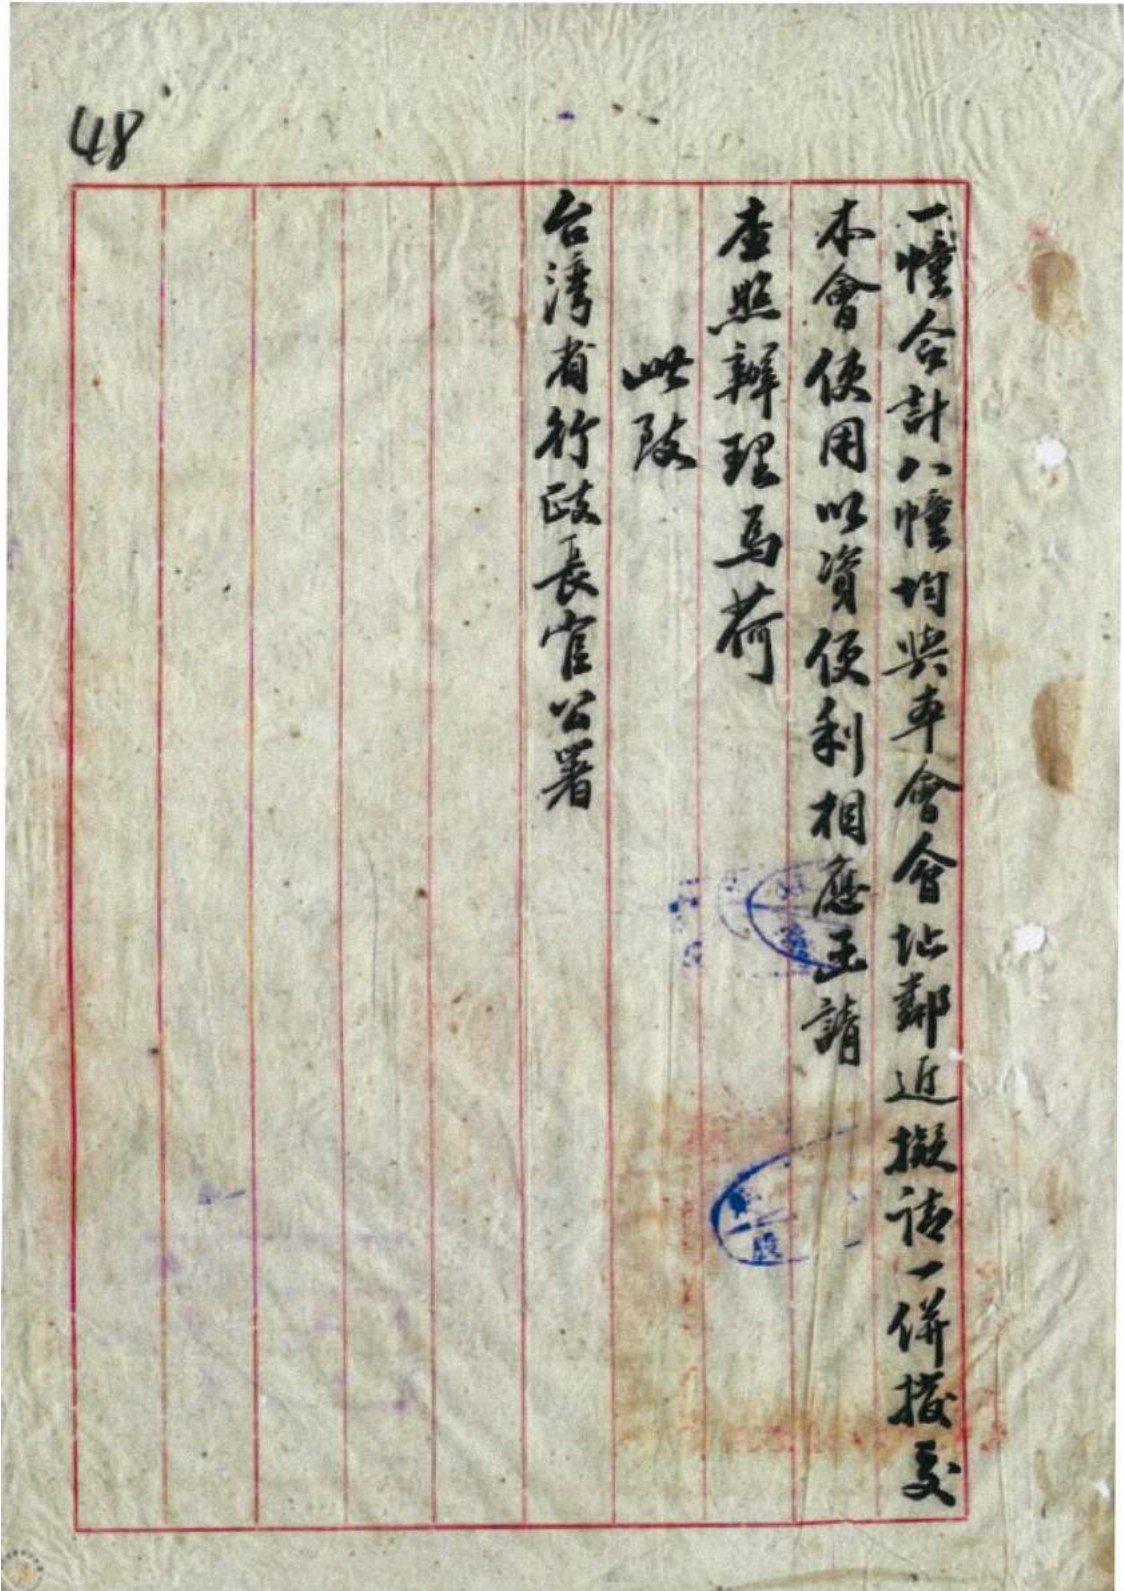 48
一幢合計八幢均與本會會址鄰近擬請一併撥交
本會使用以資便利相應函請
查照辦理為荷
此致
台湾省行政長官公署